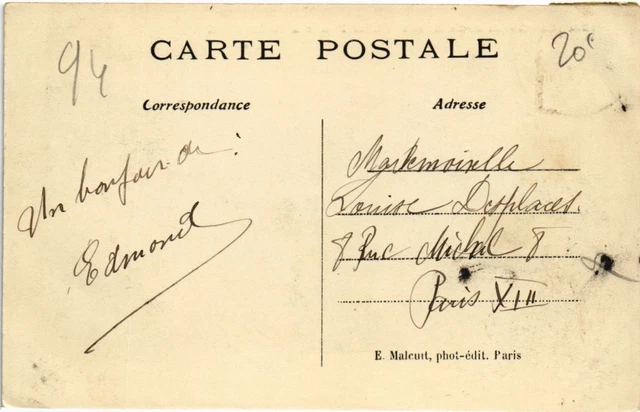 CARTE POSTALE
94
20c
Correspondance
Adresse
Un bonjour de!
Edmond
Mademoiselle
Louise Desplaces
8 Rue Michal 8
Paris XIII
E. Malcuit, phot-édit. Paris